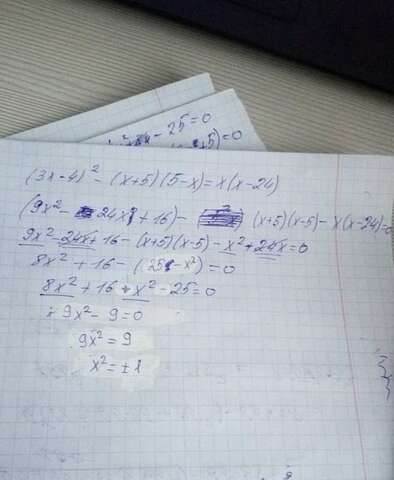 - 25 = 0
+5) = 0
(3x - 4)² - (x+5)(5-x) = x(x-24)
(9x² - 24x + 16) - (x+5)(x-5) - x(x-24)=0
9x² - 24x + 16 - (x+5)(x-5) - x² + 24x = 0
8x² + 16 - (25 - x²) = 0
8x² + 16 + x² - 25 = 0
9x² - 9 = 0
9x² = 9
x² = ± 1